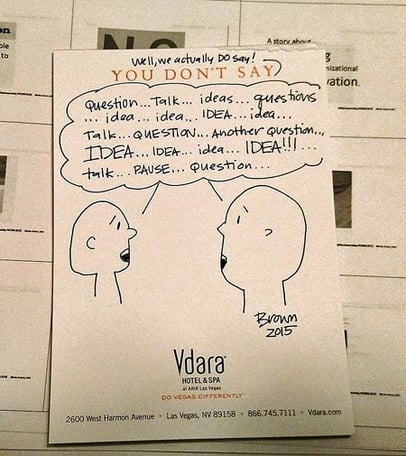 Well, we actually DO say!
YOU DON'T SAY
Question... Talk... ideas... questions
... idea... idea... IDEA... idea...
Talk... QUESTION... Another question...
IDEA... IDEA... idea... IDEA!!! ...
talk... PAUSE... Question...
Brown
2015
Vdara
HOTEL & SPA
at ARIA Las Vegas
DO VEGAS DIFFERENTLY
2600 West Harmon Avenue • Las Vegas, NV 89158 • 866.745.7111 • Vdara.com
A story about
vation.